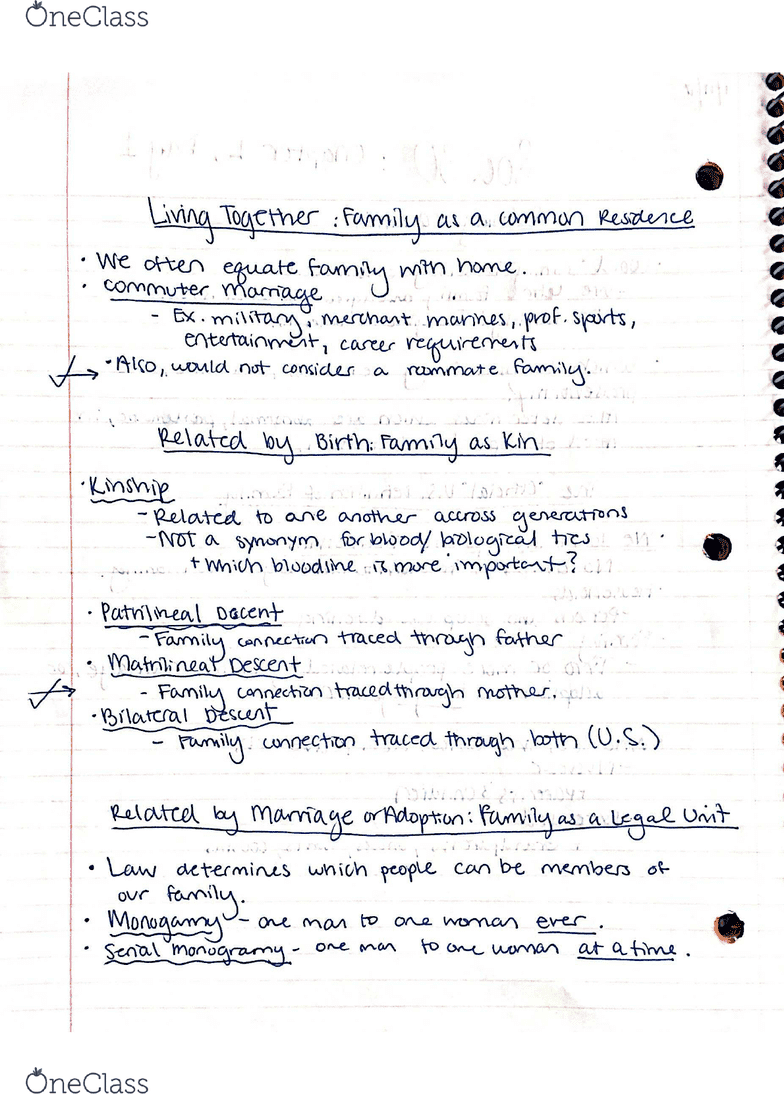 OneClass
Living Together : Family as a common Residence
• We often equate family with home.
• commuter marriage
- Ex. military, merchant marines, prof. sports,
entertainment, career requirements
• Also, would not consider a roommate family.
Related by Birth: Family as Kin
• Kinship
- Related to one another accross generations
- Not a synonym for blood/ biological ties
+ which bloodline is more important?
• Patrilineal Descent
- Family connection traced through father
• Matrilineal Descent
- Family connection traced through mother.
• Bilateral Descent
- Family connection traced through both (U.S.)
Related by Marriage or Adoption: Family as a Legal Unit
• Law determines which people can be members of
our family.
• Monogamy - one man to one woman ever.
• Serial monogramy - one man to one woman at a time.
OneClass